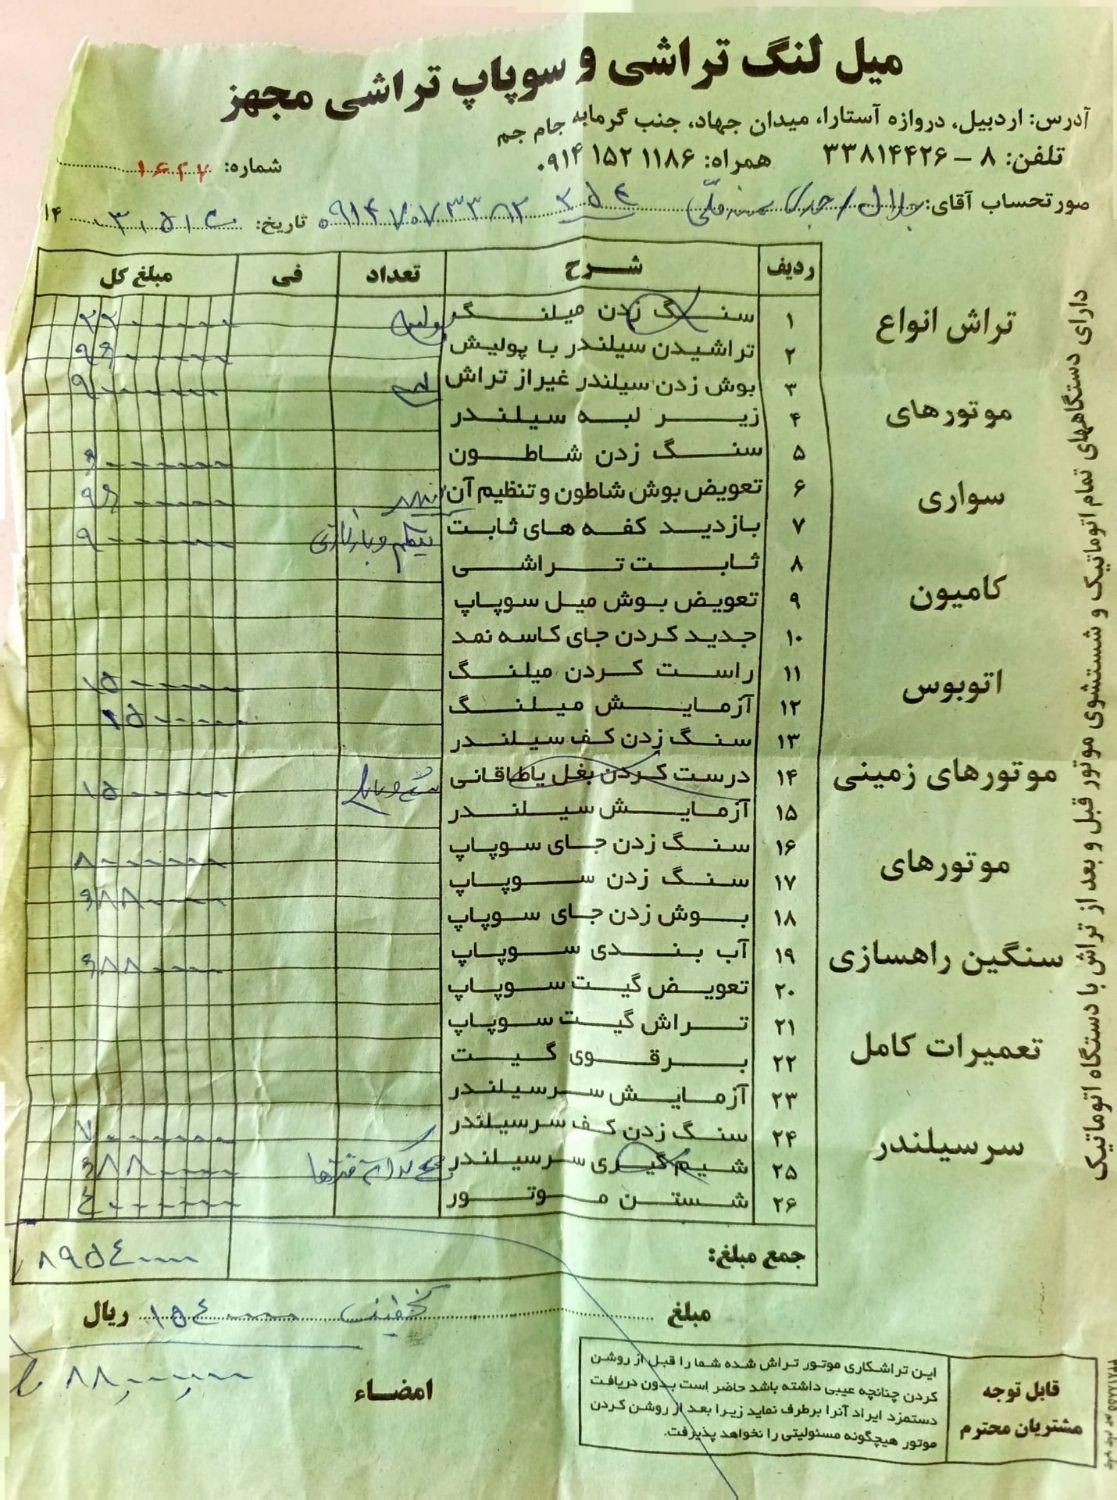 میل لنگ تراشی و سوپاپ تراشی مجهز
آدرس: اردبیل، دروازه آستارا، میدان جهاد، جنب گرمابه جام جم
تلفن: ۸ – ۳۳۸۱۴۴۲۶ همراه: ۰۹۱۴ ۱۵۲ ۱۱۸۶
شماره:
صورتحساب آقای: جلال ۰۹۱۴۷۰۷۳۳۸۲ تاریخ: ۱۴
ردیف شرح تعداد فی مبلغ کل
۱ سنگ زدن میلنگ پولیش ۲۲۰۰۰۰۰۰
۲ تراشیدن سیلندر با پولیش ۹۶۰۰۰۰۰۰
۳ بوش زدن سیلندر غیر از تراش ۹۰۰۰۰۰۰
۴ زیر لبه سیلندر
۵ سنگ زدن شاطون ۶۰۰۰۰۰۰
۶ تعویض بوش شاطون و تنظیم آن ۹۶۰۰۰۰۰۰
۷ بازدید کفه های ثابت ۹۰۰۰۰۰۰
۸ ثابت تراشی
۹ تعویض بوش میل سوپاپ
۱۰ جدید کردن جای کاسه نمد
۱۱ راست کردن میلنگ ۱۵۰۰۰۰۰۰
۱۲ آزمایش میلنگ
۱۳ سنگ زدن کف سیلندر
۱۴ درست کردن بغل یاطاقانی ۱۵۰۰۰۰۰۰
۱۵ آزمایش سیلندر
۱۶ سنگ زدن جای سوپاپ ۸۰۰۰۰۰۰
۱۷ سنگ زدن سوپاپ
۱۸ بوش زدن جای سوپاپ
۱۹ آب بندی سوپاپ
۲۰ تعویض گیت سوپاپ
۲۱ تراش گیت سوپاپ
۲۲ برقوی گیت
۲۳ آزمایش سرسیلندر
۲۴ سنگ زدن کف سرسیلندر ۷۰۰۰۰۰۰
۲۵ شیم گیری سرسیلندر
۲۶ شستن موتور
جمع مبلغ: ۸۹۵۴۰۰۰۰
مبلغ تخفیف ۱۵۴۰۰۰۰ ریال
امضاء ۸۸،۰۰۰،۰۰۰
قابل توجه مشتریان محترم
این تراشکاری موتور تراش شده شما را قبل از روشن
کردن چنانچه عیبی داشته باشد حاضر است بدون دریافت
دستمزد ایراد آنرا برطرف نماید زیرا بعد از روشن کردن
موتور هیچگونه مسئولیتی را نخواهد پذیرفت.
تراش انواع
موتورهای
سواری
کامیون
اتوبوس
موتورهای زمینی
موتورهای
سنگین راهسازی
تعمیرات کامل
سرسیلندر
دارای دستگاههای تمام اتوماتیک و شستشوی موتور قبل و بعد از تراش با دستگاه اتوماتیک